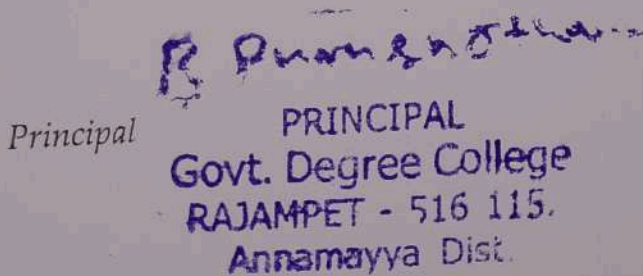 Principal
PRINCIPAL
Govt. Degree College
RAJAMPET - 516 115.
Annamayya Dist.